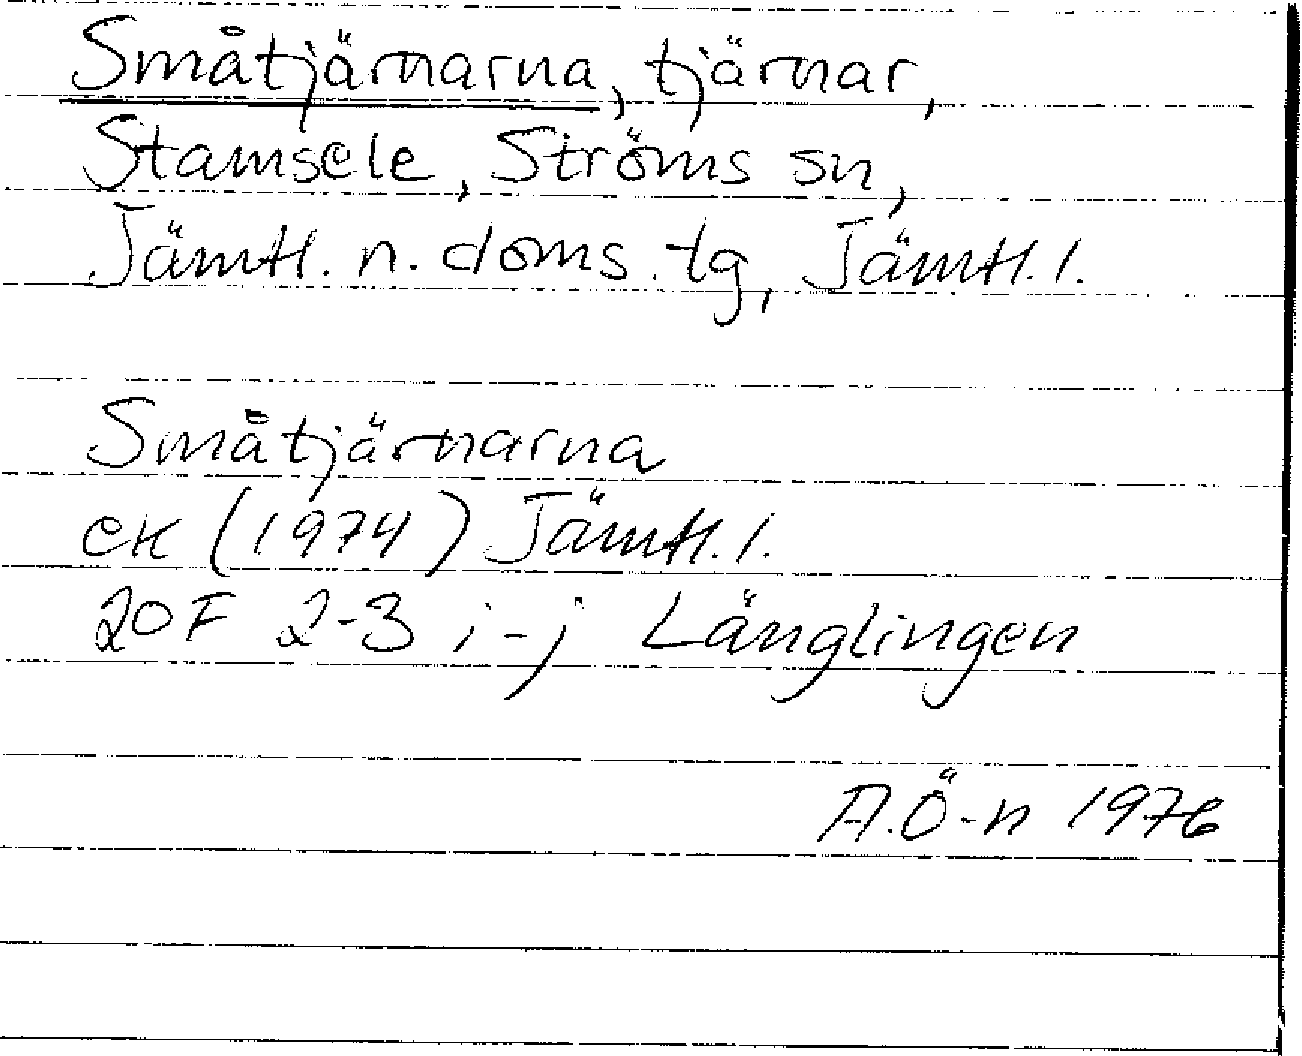 Småtjärnarna, tjärnar,
Stamsele, Ströms sn,
Jämtl. n. doms. tg, Jämtl. l.
Småtjärnarna
ek (1974) Jämtl. l.
20F 2-3 i-j Länglingen
A.Ö-n 1976